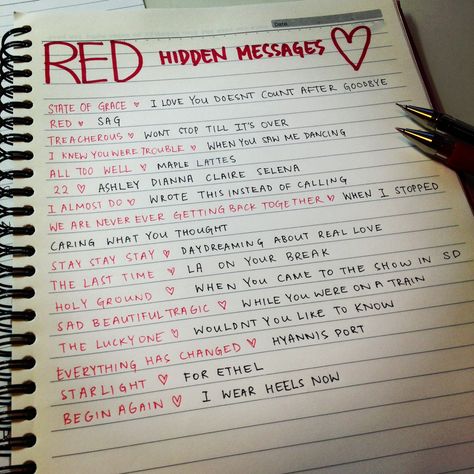 Date
RED HIDDEN MESSAGES ♡
STATE OF GRACE ♡ I LOVE YOU DOESNT COUNT AFTER GOODBYE
RED ♡ SAG
TREACHEROUS ♡ WONT STOP TILL IT'S OVER
I KNEW YOU WERE TROUBLE ♡ WHEN YOU SAW ME DANCING
ALL TOO WELL ♡ MAPLE LATTES
22 ♡ ASHLEY DIANNA CLAIRE SELENA
I ALMOST DO ♡ WROTE THIS INSTEAD OF CALLING
WE ARE NEVER EVER GETTING BACK TOGETHER ♡ WHEN I STOPPED
CARING WHAT YOU THOUGHT
STAY STAY STAY ♡ DAYDREAMING ABOUT REAL LOVE
THE LAST TIME ♡ LA ON YOUR BREAK
HOLY GROUND ♡ WHEN YOU CAME TO THE SHOW IN SD
SAD BEAUTIFUL TRAGIC ♡ WHILE YOU WERE ON A TRAIN
THE LUCKY ONE ♡ WOULDNT YOU LIKE TO KNOW
EVERYTHING HAS CHANGED ♡ HYANNIS PORT
STARLIGHT ♡ FOR ETHEL
BEGIN AGAIN ♡ I WEAR HEELS NOW